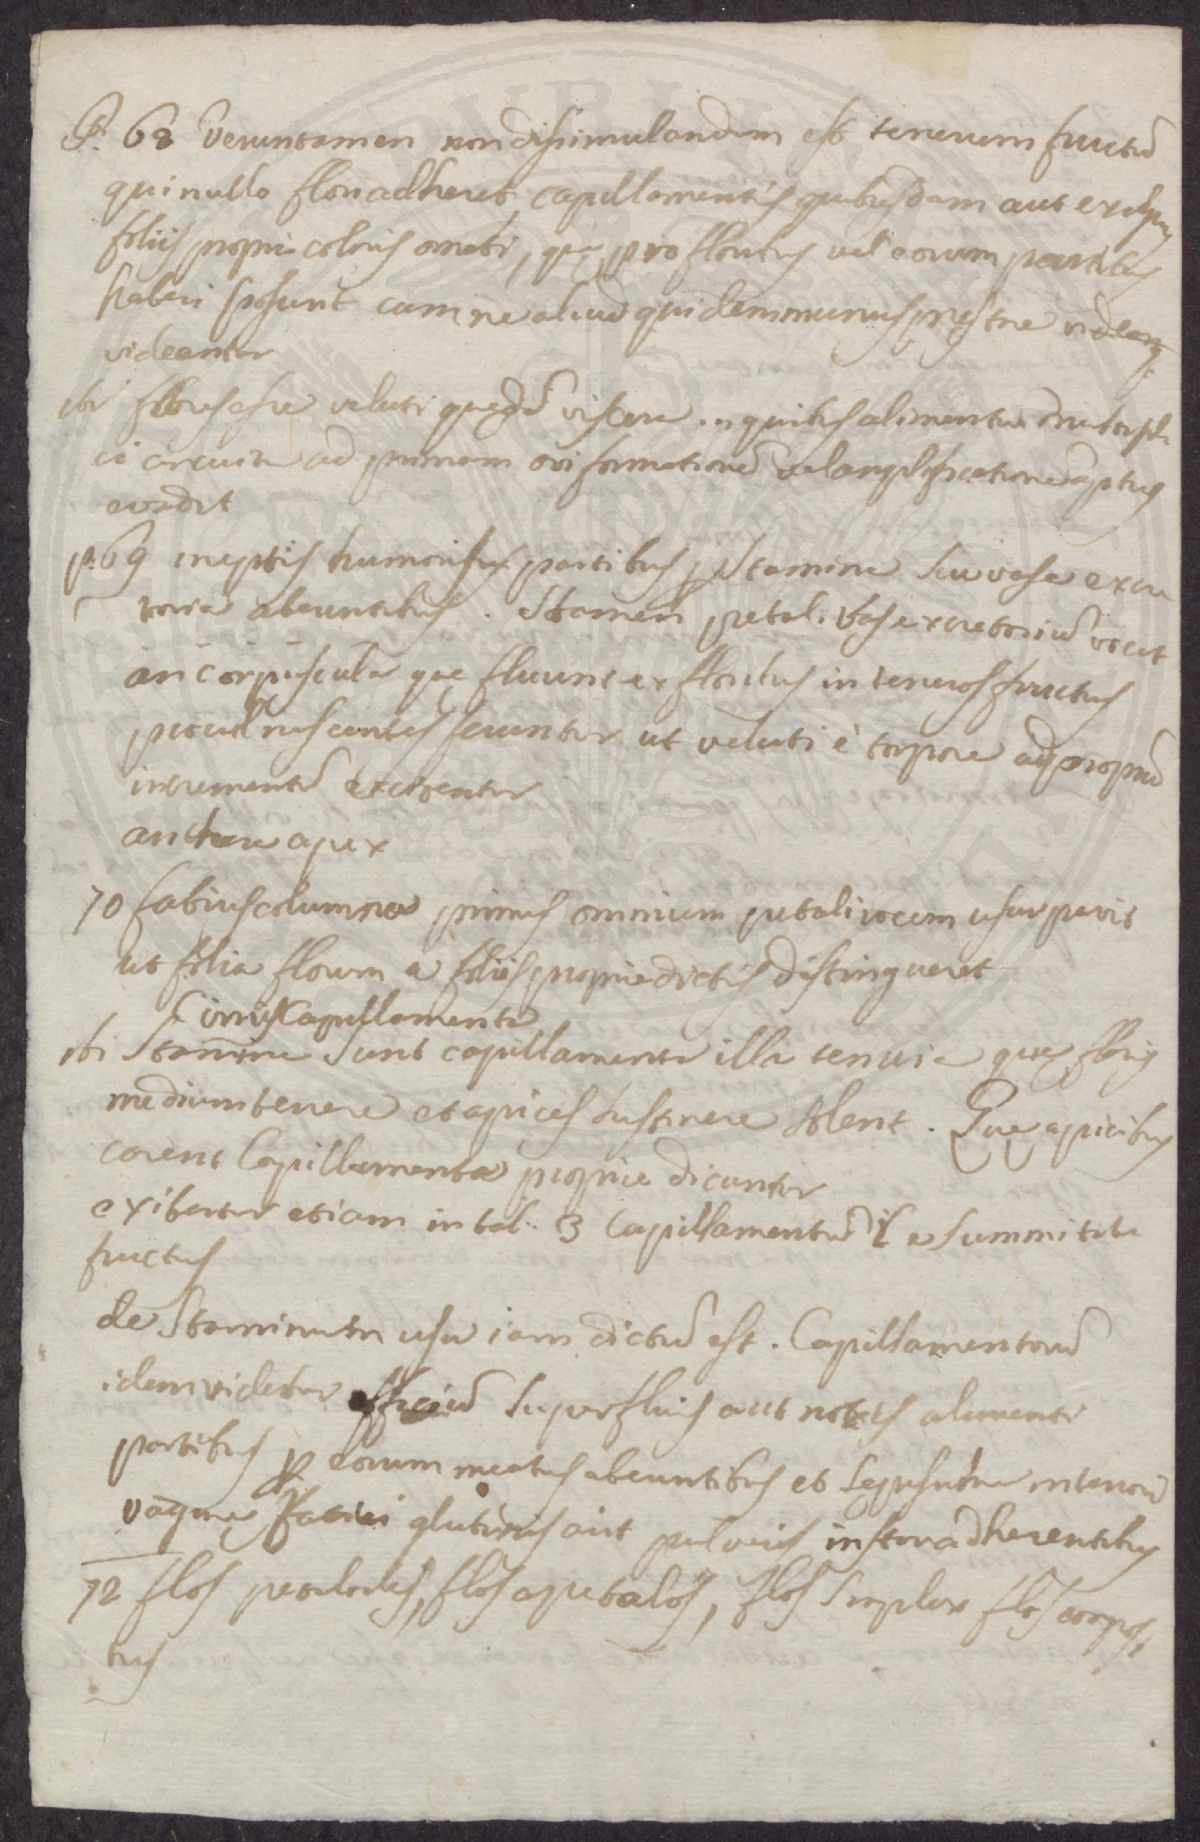 P. 68 Veruntamen non dissimulandum est tenerum fructū
qui nullo flori adheret capillamentis quibusdam aut exiguis
foliis proprii coloris ornari, quę pro floribus vel eorum partibus
haberi possunt cum ne aliud quidem munus pręstare videantʳ
videantur
ibi flores esse veluti quędā viscera in quibus alimentū
circuitu ad primam ovi formationē vel amplificationē aptus
evadit
p. 69 ineptis humoris partibus ꝑ Stamina seu vasa excre
toria abeuntibus. Stamen petal. Vas excretoriū vocat
an corpuscula quę fluunt ex floribus in teneros fructus
procul nascentes feruntur ut veluti è torpore ad propriū
incrementū excitentur
anthera apex
70 fabius columna primus omnium petali vocem usurpavit
ut folia florum a foliis proprie dictis distingueret
Cirrus Capillamenta
ibi Stamina sunt capillamenta illa tenuia quę floris
medium tenere et apices sustinere solent. Quę apicibus
carent Capillamenta proprie dicuntur
exibetur etiam in tab. 3 Capillamentū e summitate
fructus
de Staminum usu iam dictū est. Capillamentorū
idem videtur officiū superfluis aut noxiis alimenti
partibus ꝑ eorum meatus abeuntibus et interiori
vaginę glutinis aut pulveris instar adherentibus
72 flos petalodes, flos apetalos, flos simplex flos composi
tus